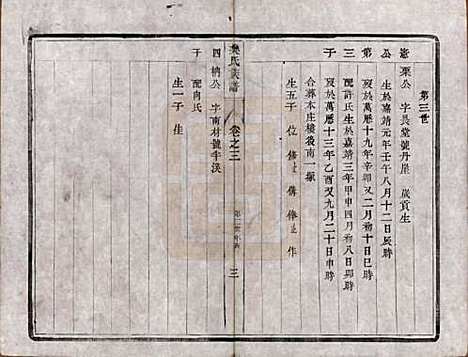 第三世
憲 栗公 字長堂號丹崖 歲貢生
公 生於嘉靖元年壬午八月十二日辰時
第 歿於萬曆十九年辛卯又二月初十日巳時
三 配許氏生於嘉靖三年甲申四月初八日卯時
子 歿於萬曆十三年乙酉又九月二十日申時
合葬本庄樓後南一振
生五子 位 脩 傳 俸 作
樊氏族譜 卷之三 三
四 柟公 字南材號半溪
子 配向氏
生一子 佳